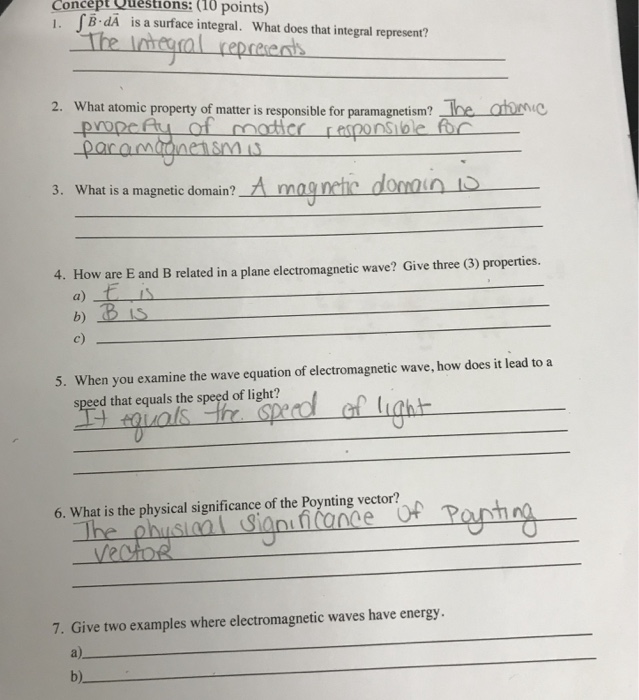 Concept Questions: (10 points)
1. ∫B⃗·dA⃗ is a surface integral. What does that integral represent?
The integral represents
2. What atomic property of matter is responsible for paramagnetism? The atomic
property of matter responsible for
paramagnetism is
3. What is a magnetic domain? A magnetic domain is
4. How are E and B related in a plane electromagnetic wave? Give three (3) properties.
a) E is
b) B is
c)
5. When you examine the wave equation of electromagnetic wave, how does it lead to a
speed that equals the speed of light?
It equals the speed of light
6. What is the physical significance of the Poynting vector?
The physical significance of Poynting
vector
7. Give two examples where electromagnetic waves have energy.
a)
b)